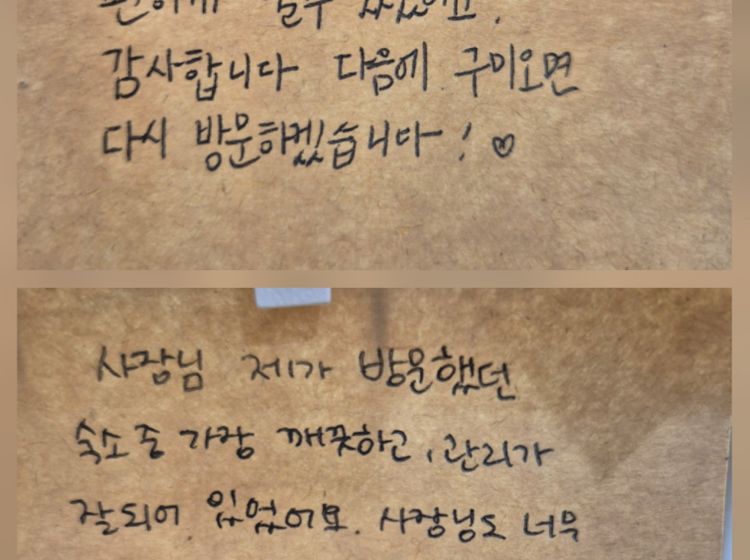 감사합니다 다음에 구미오면
다시 방문하겠습니다! ♡
사장님 제가 방문했던
숙소 중 가장 깨끗하고, 관리가
잘되어 있었어요. 사장님도 너무